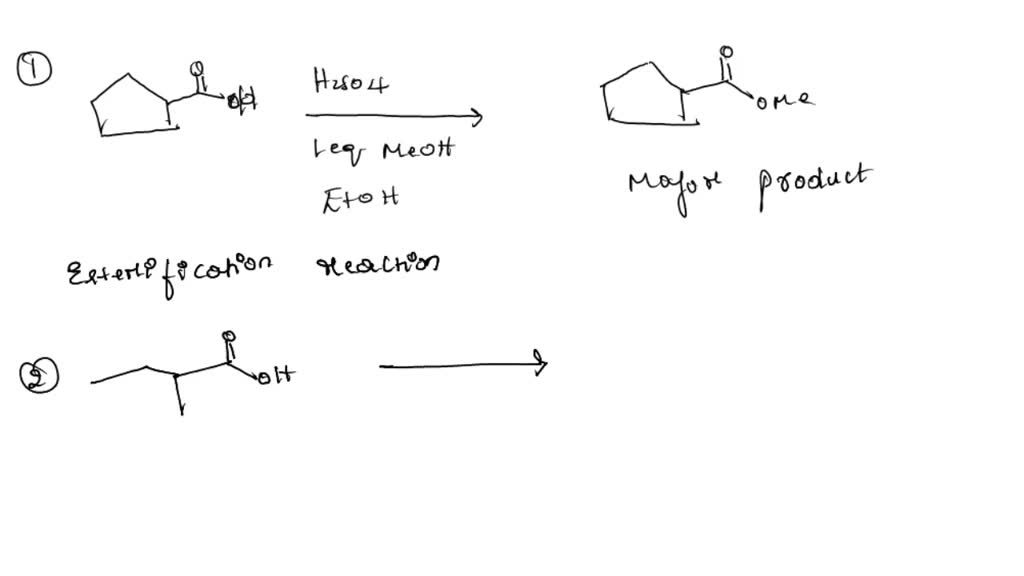 ①
O
OH
H2SO4
1eq MeOH
EtOH
O
OMe
Major product
Esterification reaction
②
O
OH